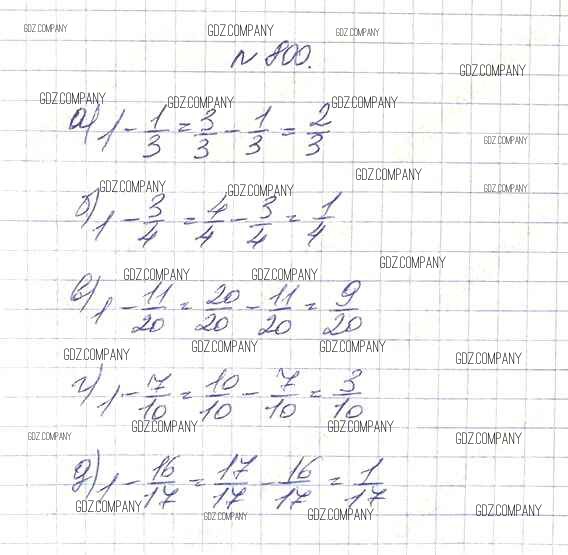 GDZ.COMPANY GDZ.COMPANY GDZ.COMPANY
N 800.
GDZ.COMPANY
GDZ.COMPANY GDZ.COMPANY GDZ.COMPANY
а) 1 - 1/3 = 3/3 - 1/3 = 2/3
GDZ.COMPANY
GDZ.COMPANY
GDZ.COMPANY GDZ.COMPANY GDZ.COMPANY
б) 1 - 3/4 = 4/4 - 3/4 = 1/4
GDZ.COMPANY
GDZ.COMPANY GDZ.COMPANY
в) 1 - 11/20 = 20/20 - 11/20 = 9/20
GDZ.COMPANY GDZ.COMPANY GDZ.COMPANY GDZ.COMPANY
г) 1 - 7/10 = 10/10 - 7/10 = 3/10
GDZ.COMPANY GDZ.COMPANY
GDZ.COMPANY GDZ.COMPANY
д) 1 - 16/17 = 17/17 - 16/17 = 1/17
GDZ.COMPANY GDZ.COMPANY GDZ.COMPANY GDZ.COMPANY